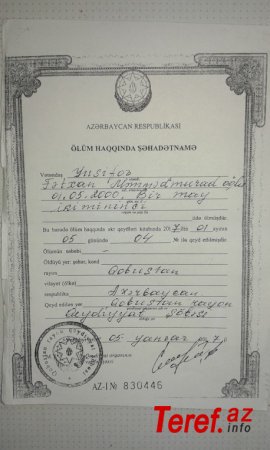 AZƏRBAYCAN RESPUBLİKASI
ÖLÜM HAQQINDA ŞƏHADƏTNAMƏ
Vətəndaş Yusifov
oğlu
01.05.2000. Bir may
iki mininci
ildə ölmüşdür.
Bu barədə ölüm haqqında akt qeydləri kitabında 2017 01 ayının
05 günündə 04 № ilə qeyd edilmişdir.
Ölümün səbəbi
Öldüyü yer: şəhər, kənd
rayon Qobustan
vilayət (ölkə)
respublika Azərbaycan
Qeyd edilən yer: Qobustan rayon
Qeydiyyat Şöbəsi
05 yanvar
AZ-I № 830446
Teref.az
info